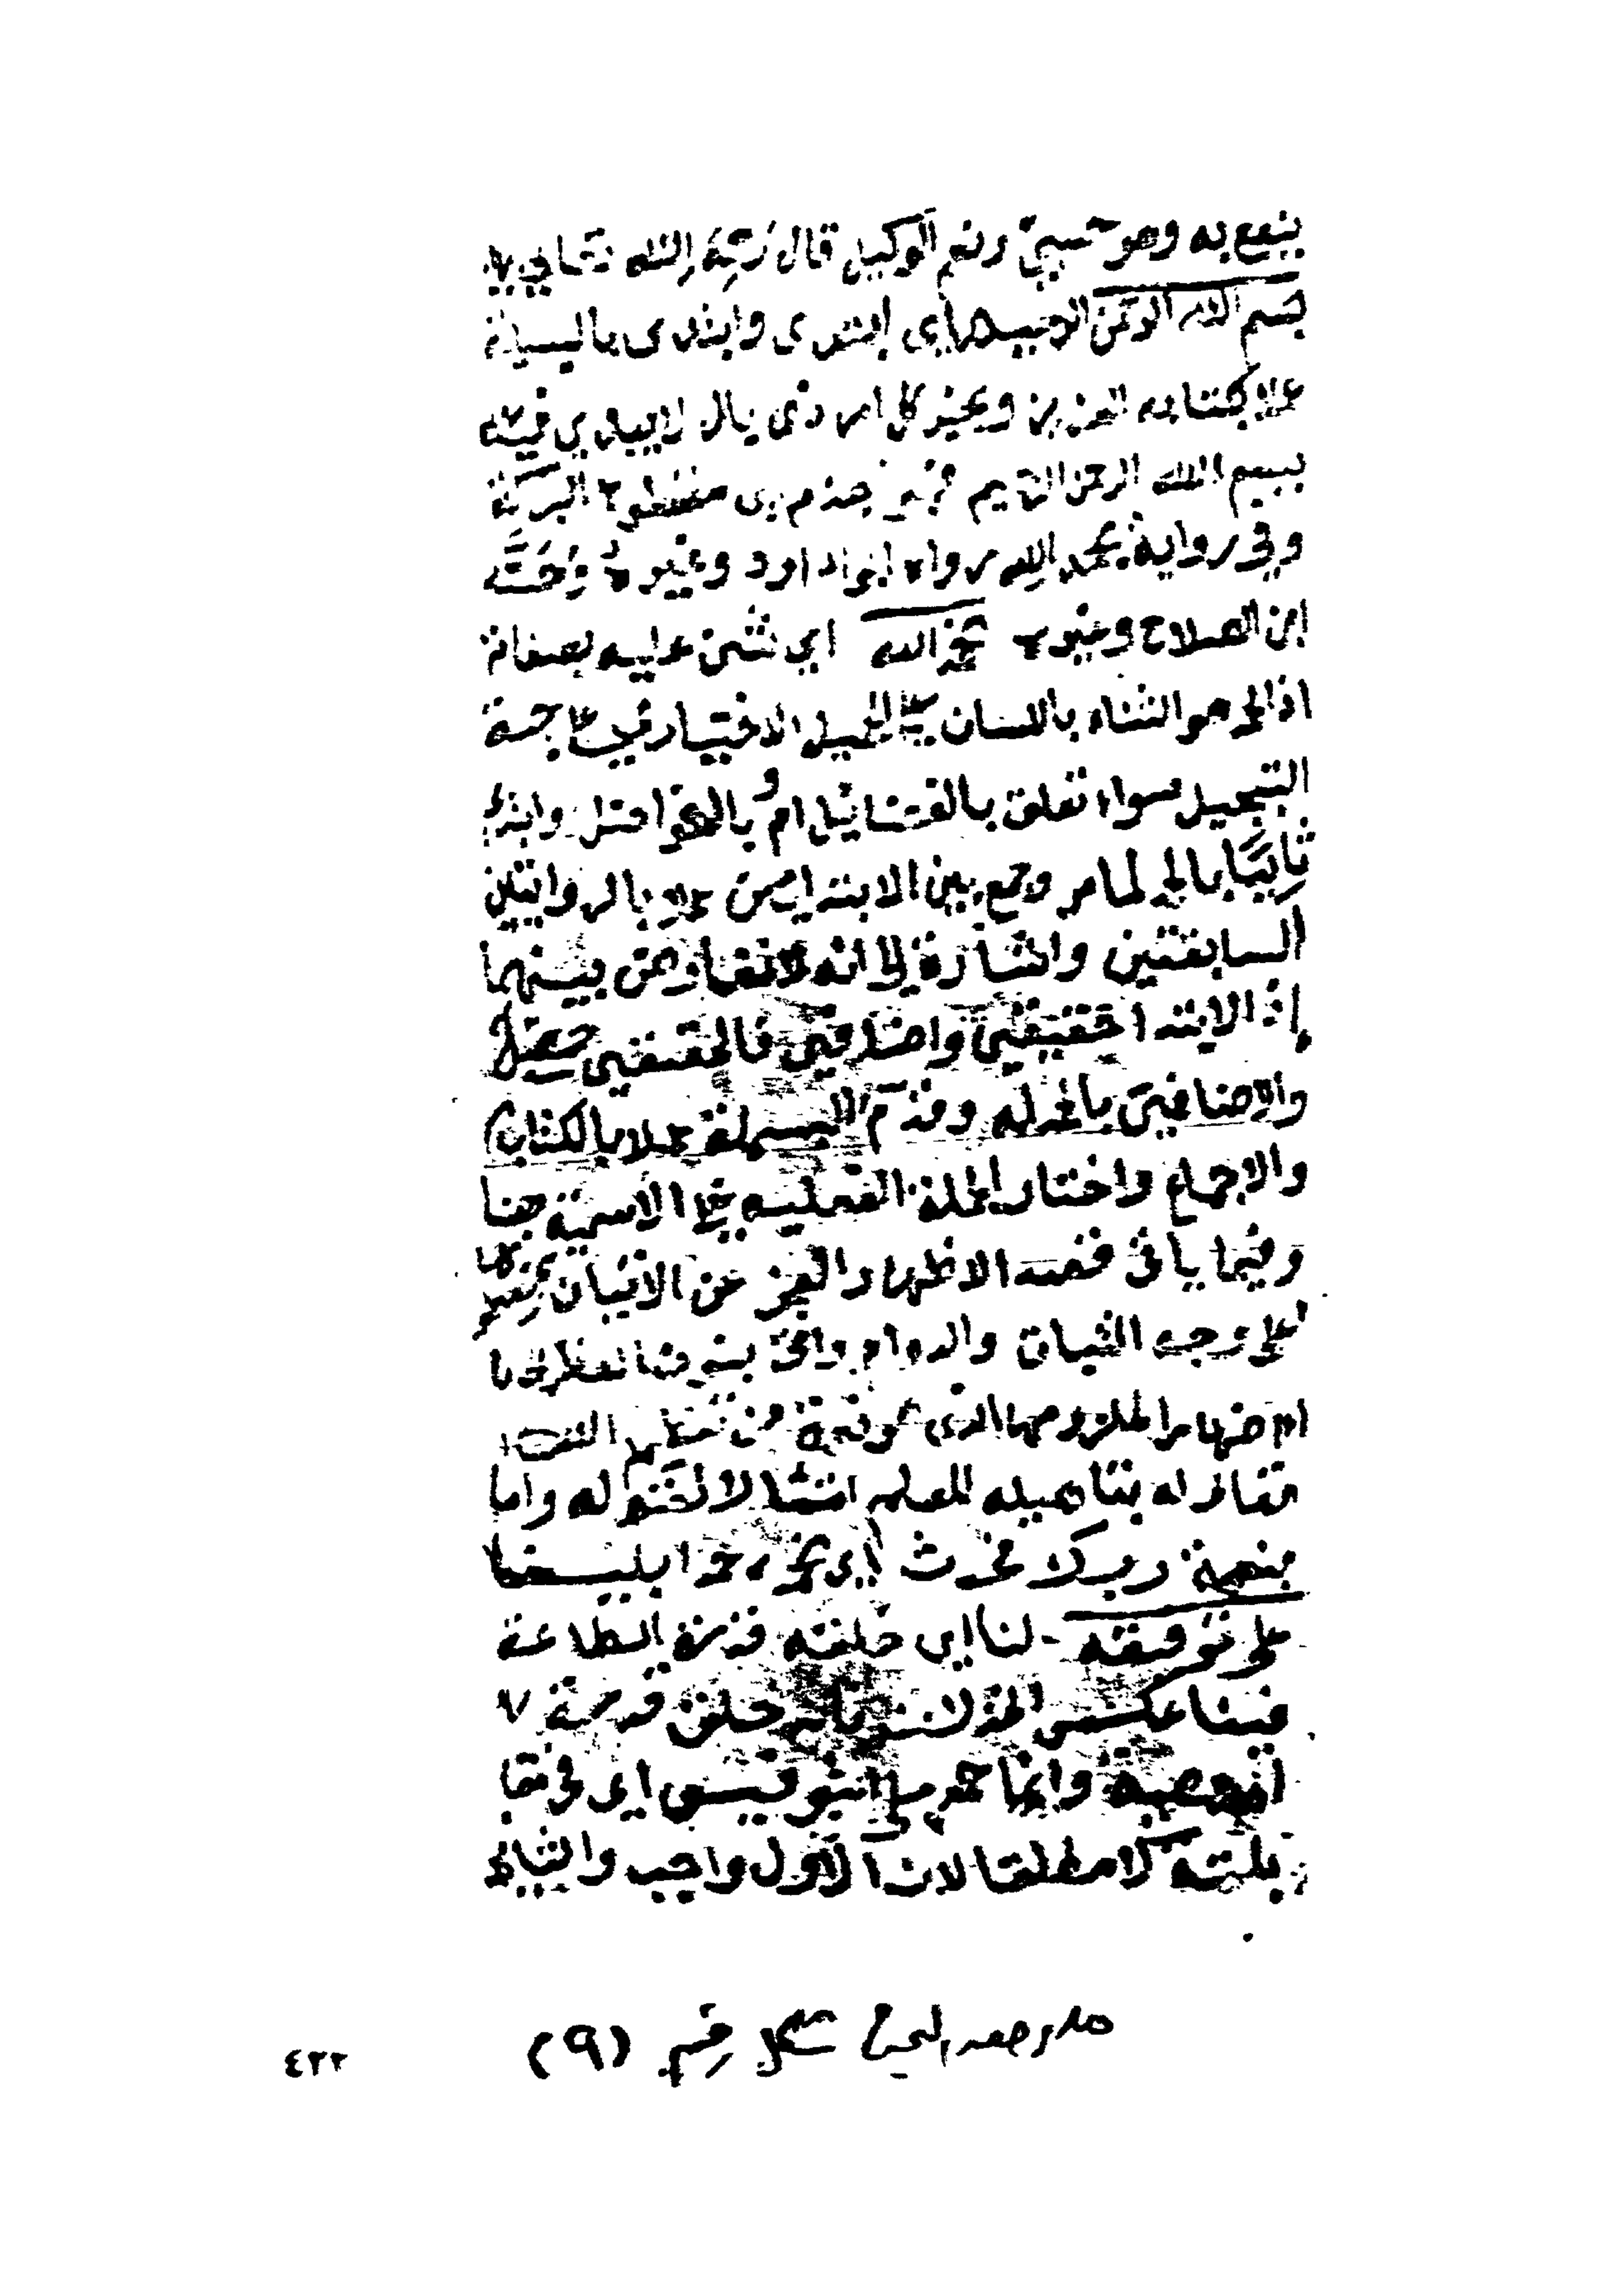 ينفع به وهو حسبي ونعم الوكيل قال رحمه الله تعالى
بسم الله الرحمن الرحيم اي ابتدي وابتدى بالبسملة
عملا بكتابه العزيز وبخبر كل امر ذى بال لا يبدى فيه
ببسم الله الرحمن الرحيم فهو اجذم اى مقطوع البركة
وفي رواية بحمد الله رواه ابو داود وغيره وحسنه
ابن الصلاح وغيره نحمد الله اي نثنى عليه بصفاته
اذ الحمد هو الثناء باللسان على الجميل الاختياري على جهة
التبجيل سواء تعلق بالفضايل ام بالفواضل وابتدا
ثانيا بالحمد لما مر وجمع بين الابتداين عملا بالروايتين
السابقتين واشارة الى انه لا تعارض بينهما
اذ الابتدا حقيقي واضافي فالحقيقي حصل
والاضافي بالحمدله وقدم البسملة عملا بالكتاب
والاجماع واختار الجملة الفعليه على الاسمية هنا
وفيما ياتى قصد الاظهار العجز عن الاتيان بمضمونها
على وجه الثبات والدوام واتى بنون العظمة
اظهارا لملزومها الذى هو نعمة من تعظيم الله
تعالى له بتاهيله للعلم امتثالا لقوله واما
بنعمة ربك فحدث اي نحمده حمدا بليغا
على توفيقه لنا اي خلقه قدرة الطاعة
فينا عكس الخذلان فانه خلق قدرة
المعصية وانما حمد على التوفيق اى في مقا
بلته لا مطلقا لان الاول واجب والثاني
ملاحظة شكل رقم (٩)
٤٢٢